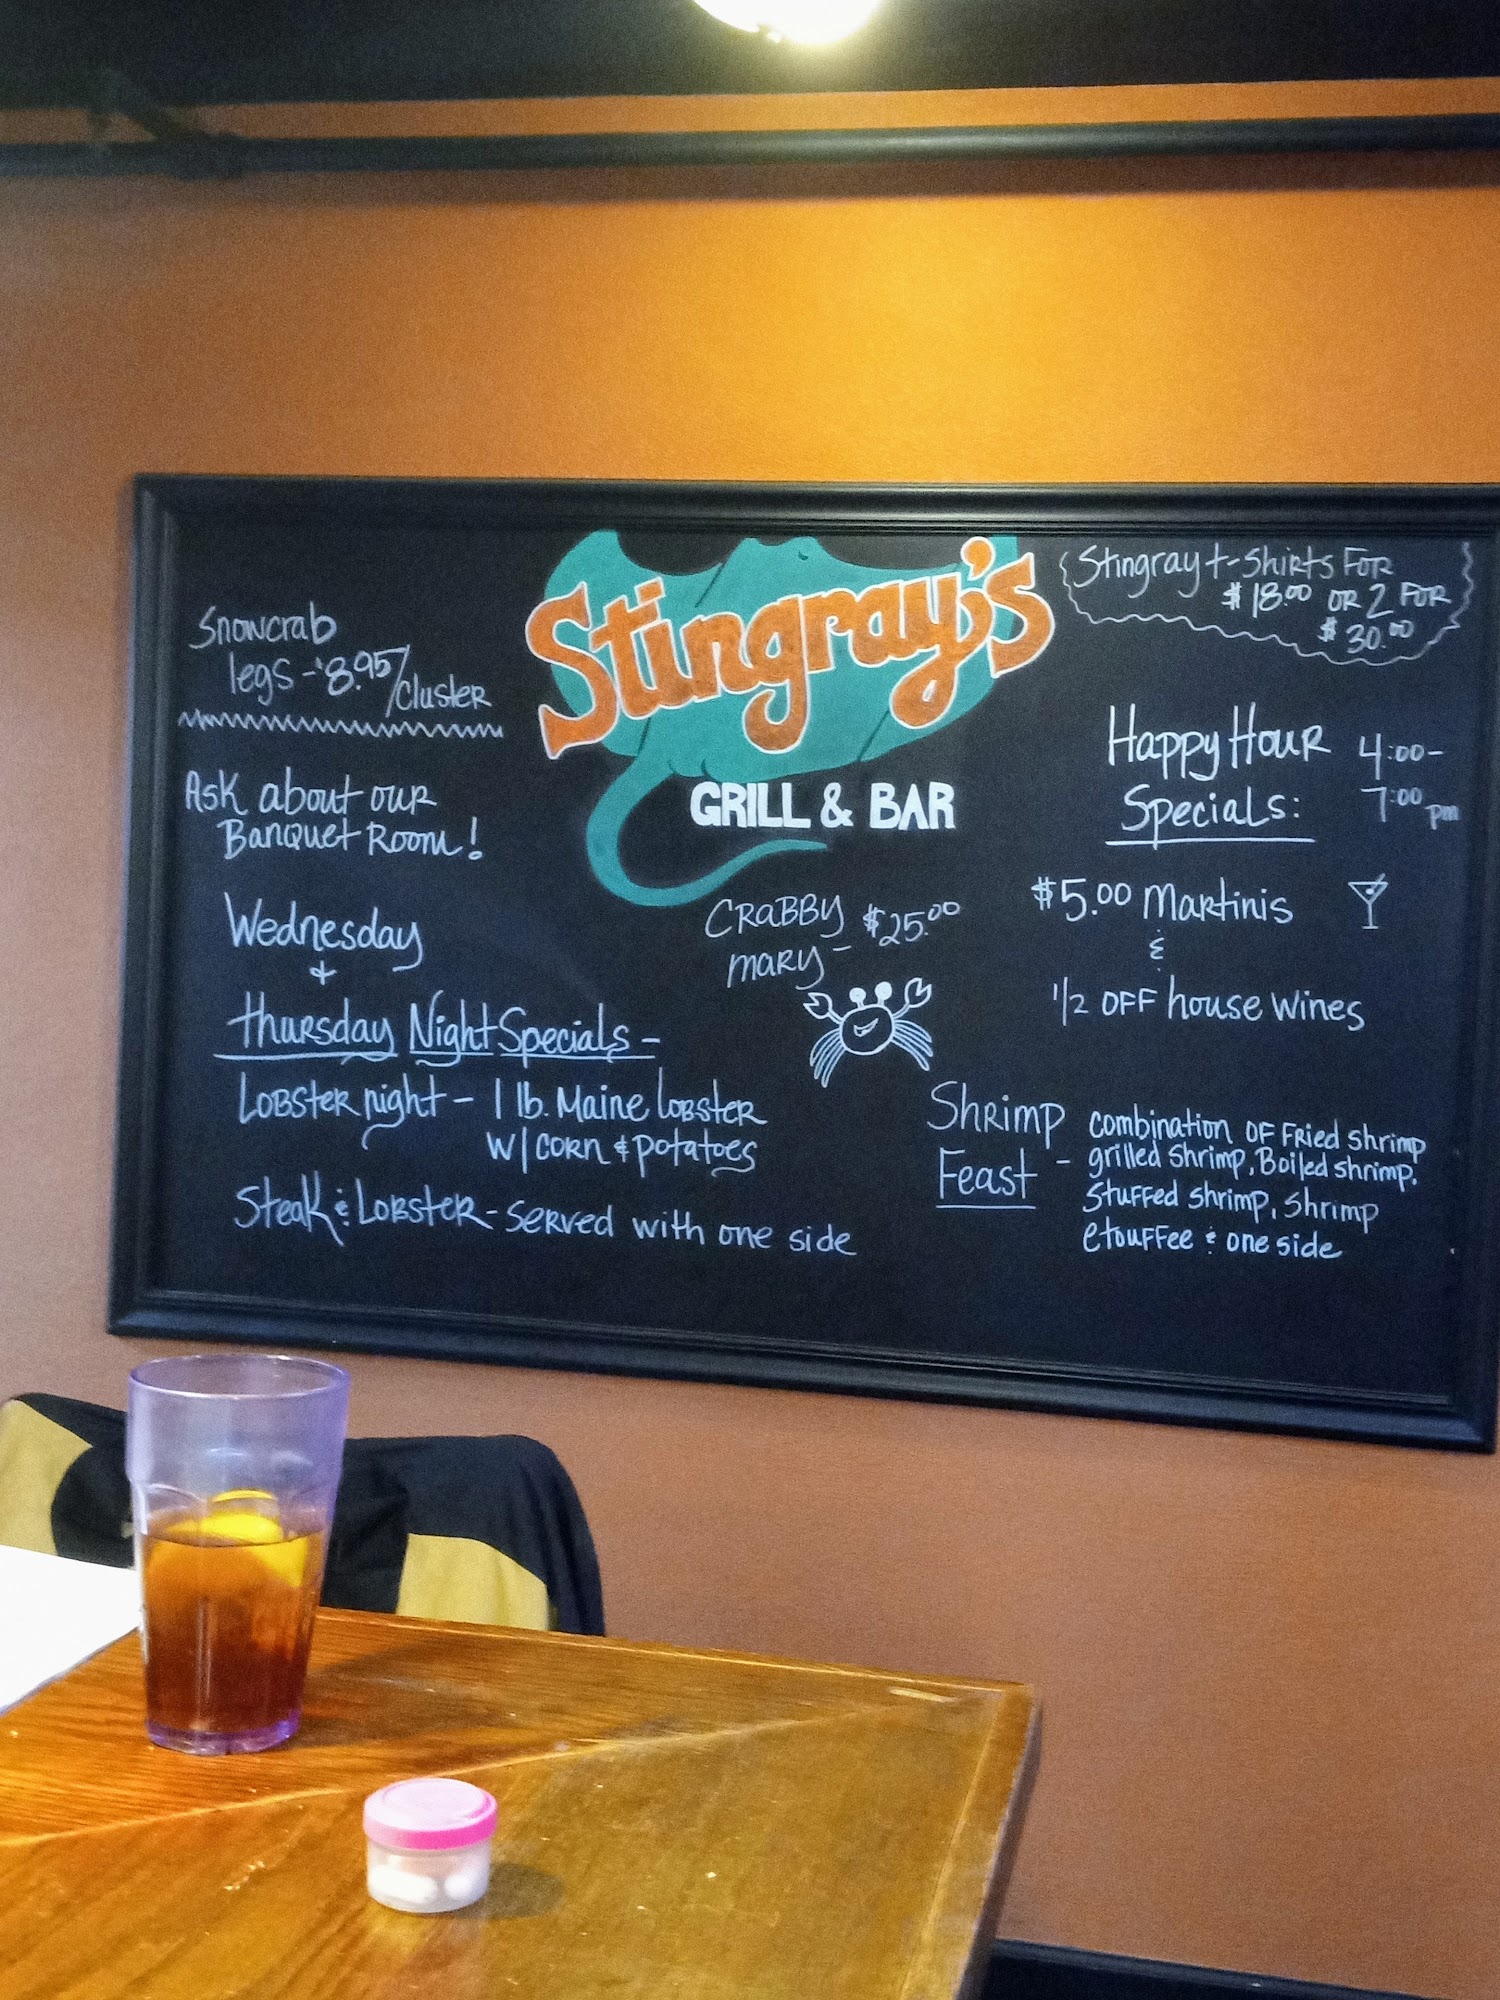 Stingray's
GRILL & BAR
Snowcrab
legs - $8.95/cluster
Ask about our
Banquet Room!
Wednesday
&
Thursday Night Specials -
Lobster night - 1 lb. Maine Lobster
w/ corn & potatoes
Steak & Lobster - served with one side
Crabby
Mary - $25.00
Stingray t-shirts for
$18.00 or 2 for
$30.00
Happy Hour 4:00-
Specials: 7:00 pm
$5.00 Martinis
&
1/2 off house wines
Shrimp
Feast -
combination of fried shrimp
grilled shrimp, Boiled shrimp.
Stuffed shrimp, Shrimp
etouffee & one side